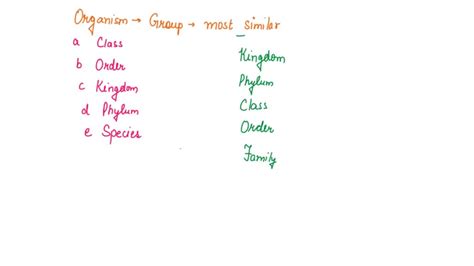 Organism → Group → most similar
a Class
b Order
c Kingdom
d Phylum
e Species
Kingdom
Phylum
Class
Order
Family